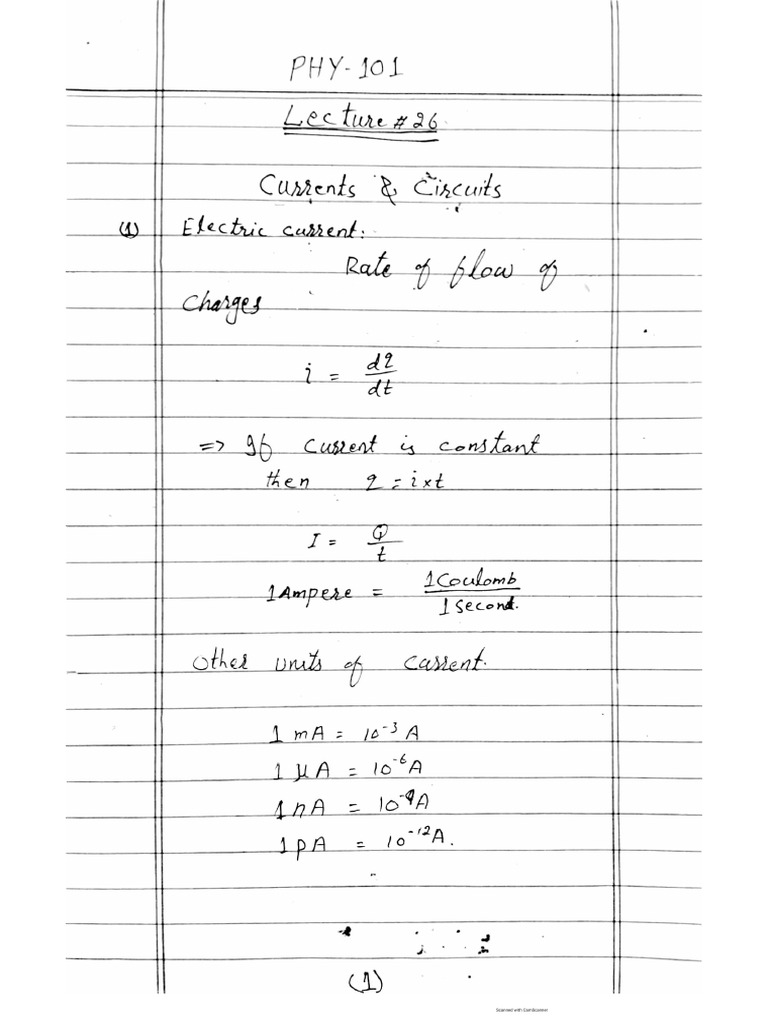 PHY-101
Lecture # 26
Currents & Circuits
(1) Electric current:
Rate of flow of
charges
i = dq/dt
=> If current is constant
then q = i×t
I = Q/t
1 Ampere = 1 Coulomb/1 Second.
Other units of current.
1 mA = 10⁻³ A
1 μA = 10⁻⁶ A
1 nA = 10⁻⁹ A
1 pA = 10⁻¹² A.
(1)
Scanned with CamScanner